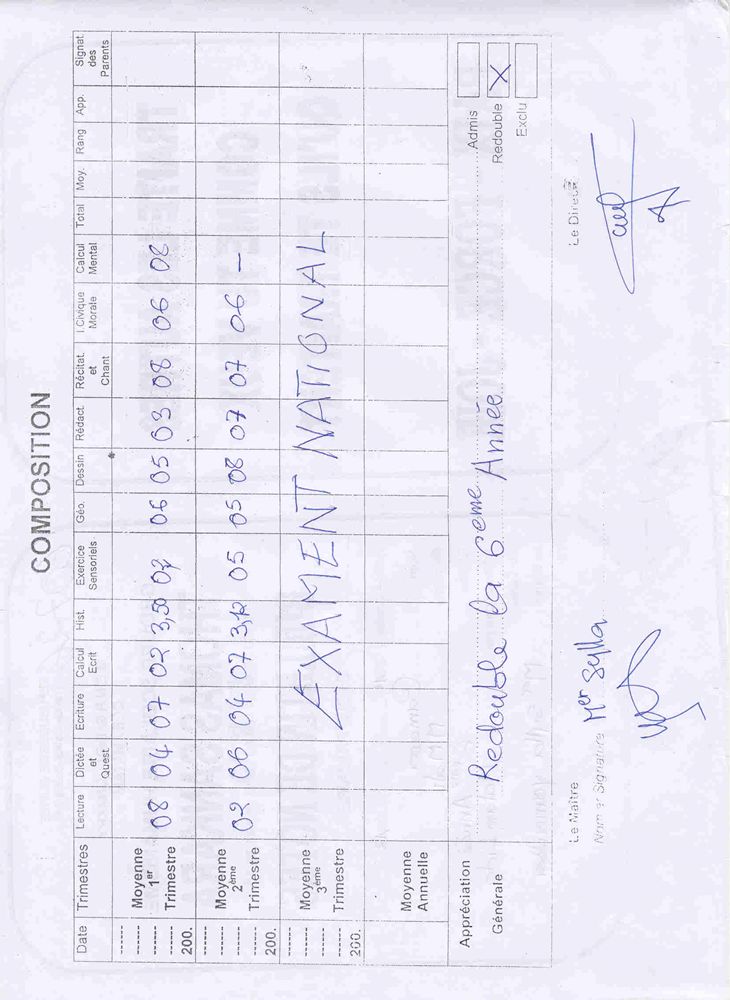 COMPOSITION
Date Trimestres Lecture Dictée et Quest. Ecriture Calcul Ecrit Hist. Exercice Sensoriels Géo. Dessin Rédact. Récitat. et Chant I.Civique Morale Calcul Mental Total Moy. Rang App. Signat. des Parents
200. Moyenne 1er Trimestre 08 04 07 02 3,50 07 06 05 03 08 06 08
200. Moyenne 2ème Trimestre 02 06 04 07 3,12 05 05 08 07 07 06 –
200. Moyenne 3ème Trimestre EXAMENT NATIONAL
Moyenne Annuelle
Appréciation Générale Redouble la 6ème Année
Admis
Redouble X
Exclu
Le Maître
Nom et Signature Mer Sylla
Le Direct